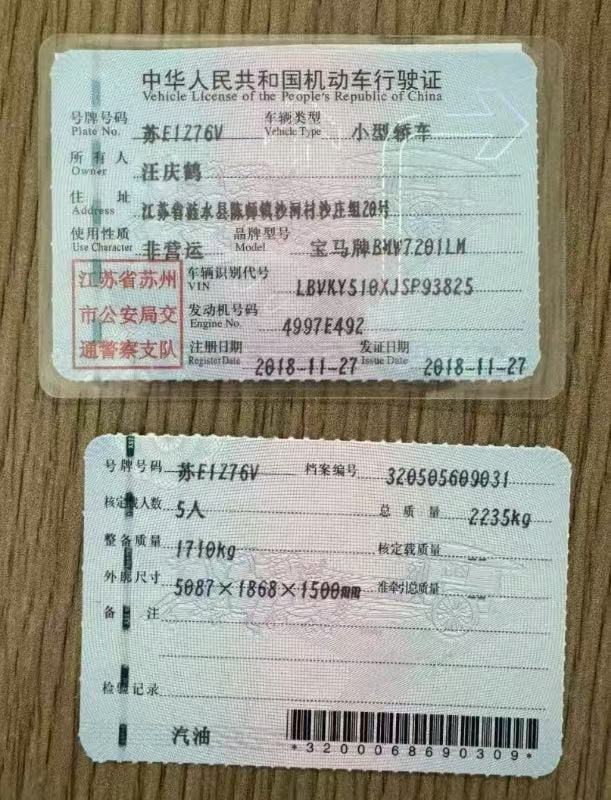 中华人民共和国机动车行驶证
Vehicle License of the People's Republic of China
号牌号码 苏E1Z76V 车辆类型 小型轿车
Plate No. Vehicle Type
所有人 汪庆鹤
Owner
住址 江苏省涟水县陈师镇沙河村沙庄组20号
Address
使用性质 非营运 品牌型号 宝马牌BMW7201LM
Use Character Model
江苏省苏州
市公安局交
通警察支队
车辆识别代号 LBVKY510XJSP93825
VIN
发动机号码 4997E492
Engine No.
注册日期 2018-11-27 发证日期 2018-11-27
Register Date Issue Date
号牌号码 苏E1Z76V 档案编号 320505609031
核定载人数 5人 总质量 2235kg
整备质量 1710kg 核定载质量 --
外廓尺寸 5087×1868×1500mm 准牵引总质量 --
备注
检验记录
汽油
*3200068690309*